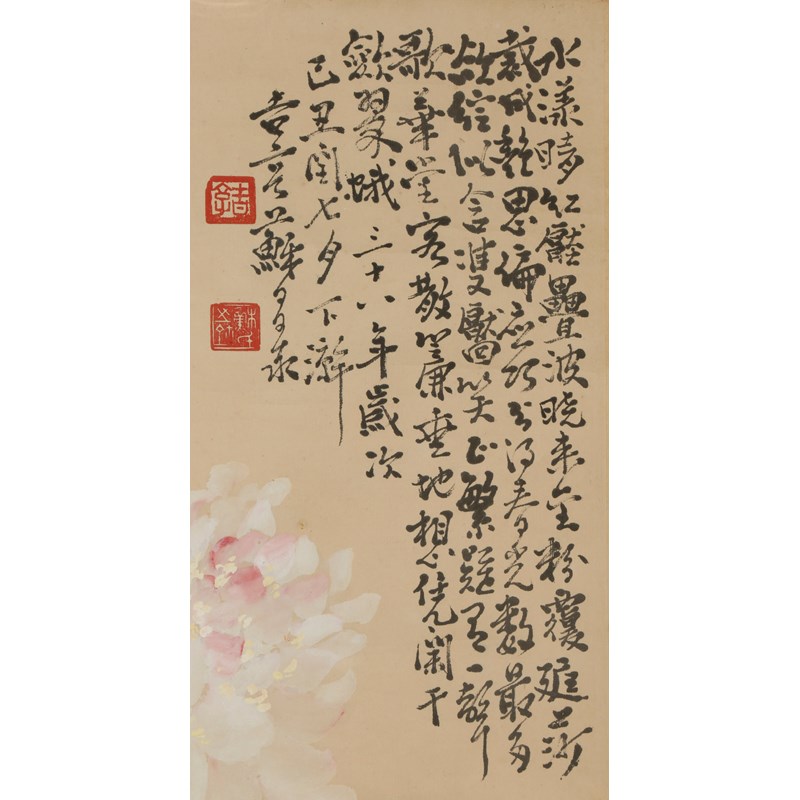 水漾晴紅壓疊波曉來金粉覆庭莎
裁成艷思偏應巧分得春光數最多
欲綻似含雙靨笑正繁疑有一聲
歌華堂客散簾垂地想凭闌干
斂翠蛾三十八年歲次
己丑閏七夕下澣
吉亭蘇
吉亭